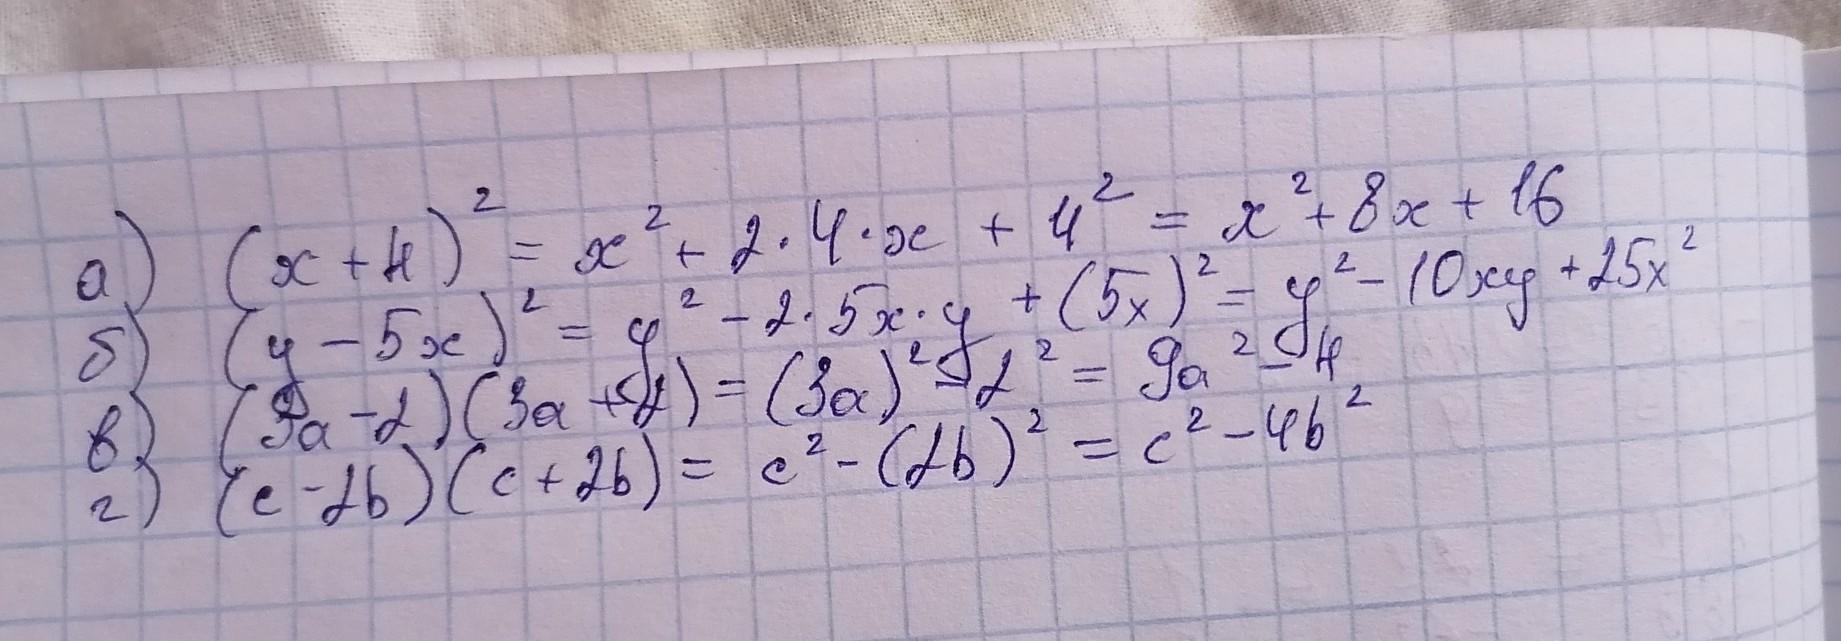 а) (x+4)² = x² + 2·4·x + 4² = x² + 8x + 16
б) (y-5x)² = y² - 2·5x·y + (5x)² = y² - 10xy + 25x²
в) (3a-2)(3a+2) = (3a)² - 2² = 9a² - 4
г) (c-2b)(c+2b) = c² - (2b)² = c² - 4b²